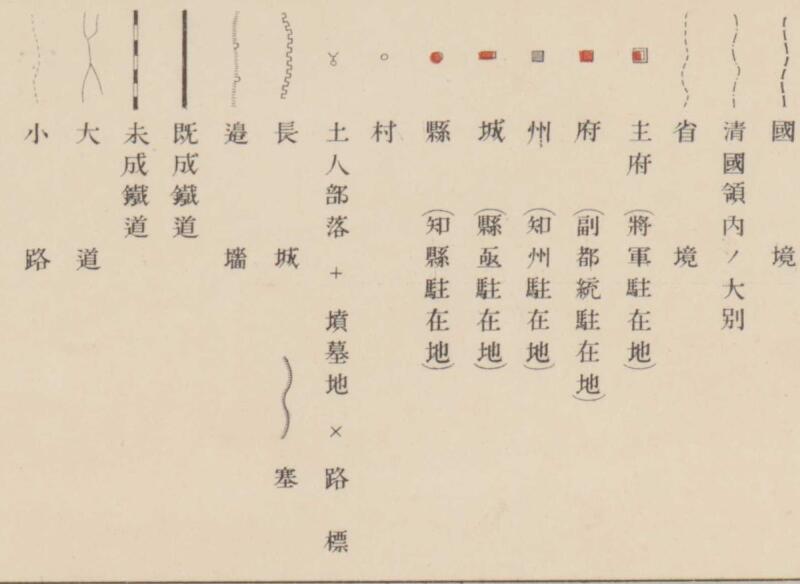 國境
清國領內ノ大別
省境
主府(將軍駐在地)
府(副都統駐在地)
州(知州駐在地)
城(縣亟駐在地)
縣(知縣駐在地)
村
土人部落 + 墳墓地 × 路標
長城 塞
邊墻
既成鐵道
未成鐵道
大道
小路